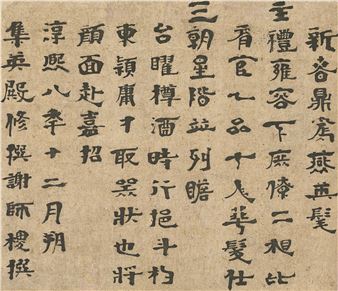 新洛鼎燕英髦
主禮雍容下庶僚二相比
肩官一品十人華髮仕
三朝星階並列瞻
台曜樽酒時行挹斗杓
東穎庸才取狀也將
顏面赴嘉招
淳熙八年十二月朔
集英殿修撰謝師稷撰